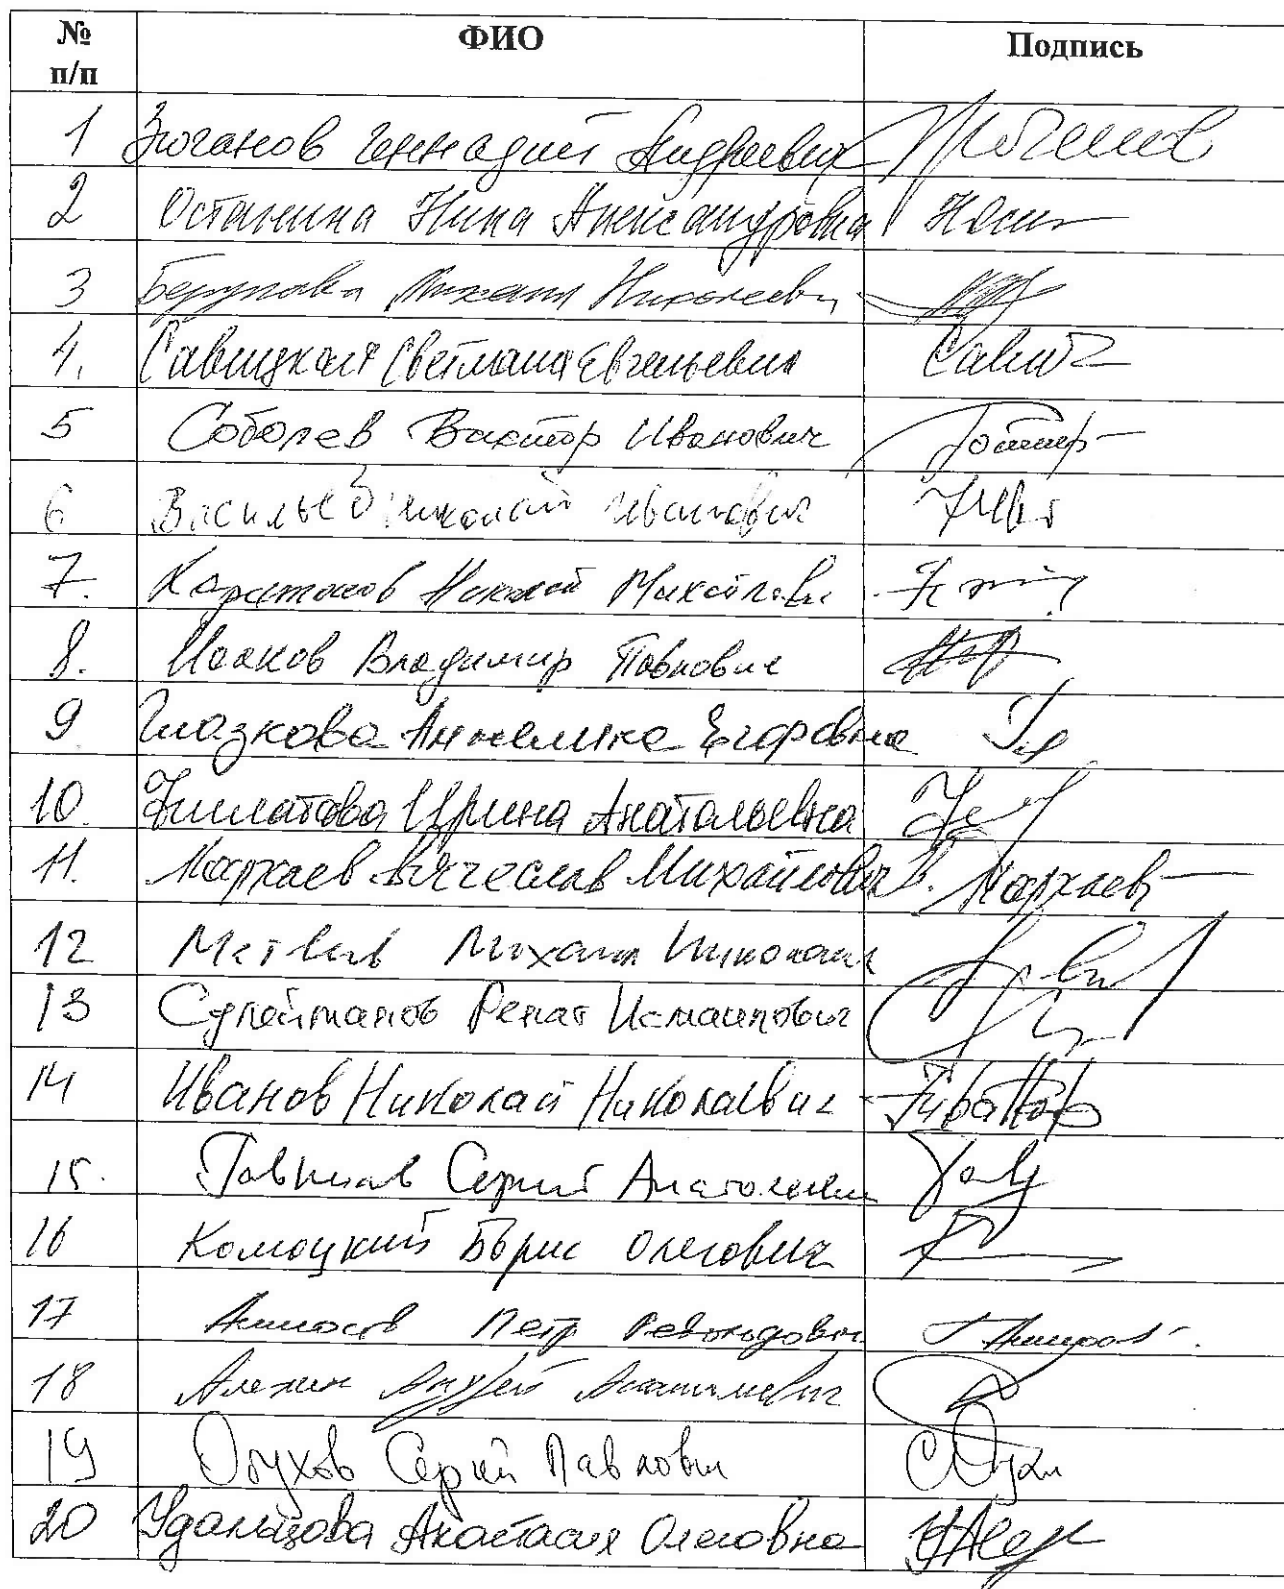 № п/п ФИО Подпись
1 Зюганов Геннадий Андреевич
2 Останина Нина Александровна
3 Берулава Михаил Николаевич
4. Савицкая Светлана Евгеньевна
5 Соболев Виктор Иванович
6 Васильев Николай Иванович
7. Харитонов Николай Михайлович
8. Исаков Владимир Павлович
9 Глазкова Анжелика Егоровна
10. Филатова Ирина Анатольевна
11. Мархаев Вячеслав Михайлович В. Мархаев
12 Матвеев Михаил Николаевич
13 Сулейманов Ренат Исмаилович
14 Иванов Николай Николаевич
15. Гаврилов Сергей Анатольевич
16 Комоцкий Борис Олегович
17 Аммосов Петр Револьдович
18 Алехин Андрей Анатольевич
19 Обухов Сергей Павлович
20 Удальцова Анастасия Олеговна